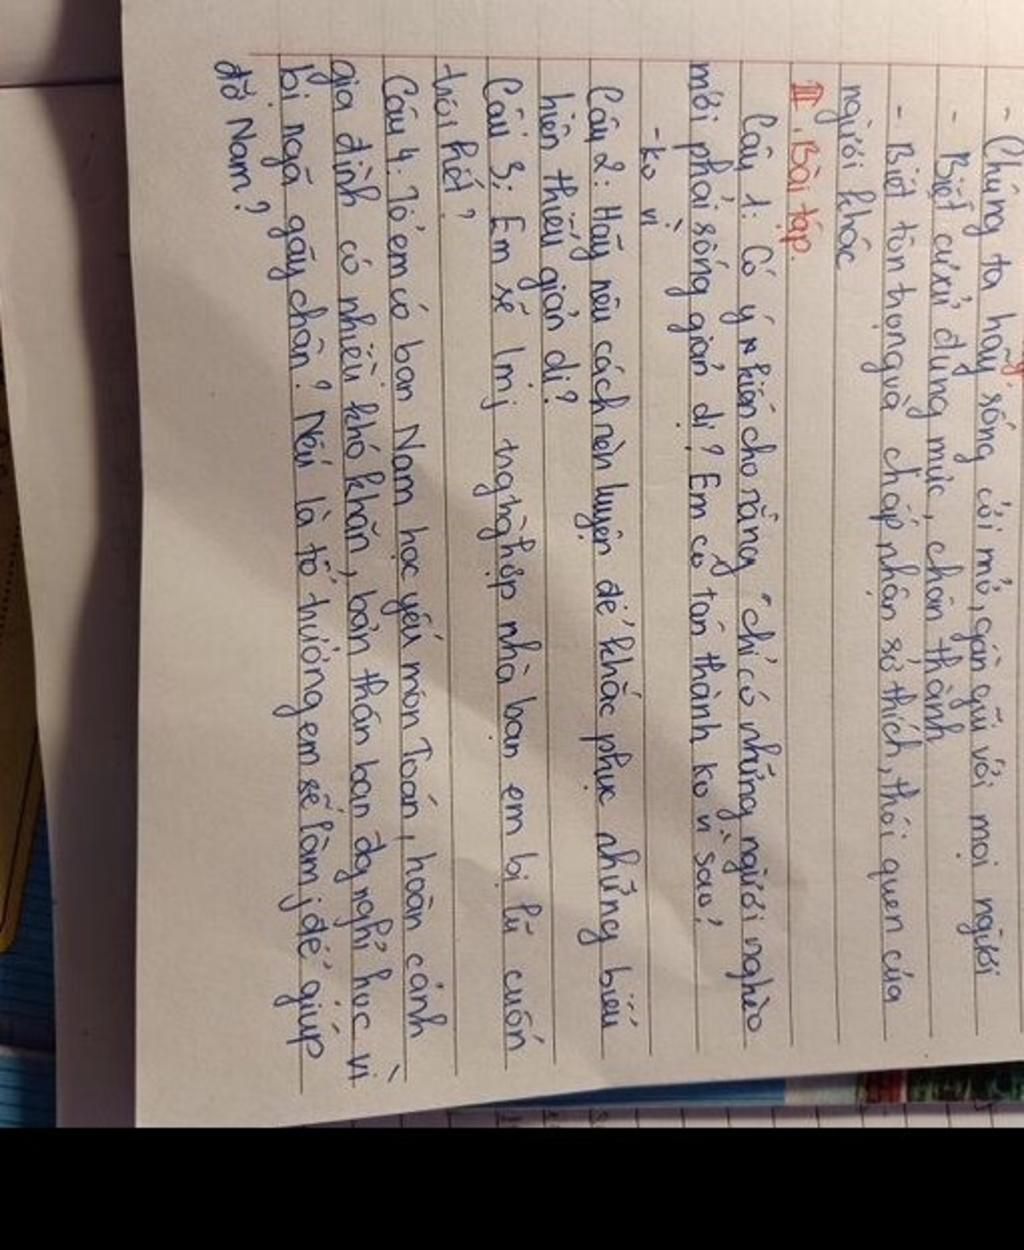 - Chúng ta hãy sống cởi mở, gần gũi với mọi người
- Biết cư xử đúng mực, chân thành
- Biết tôn trọng và chấp nhận sở thích, thói quen của
người khác
II. Bài tập.
Câu 1: Có ý kiến cho rằng "chỉ có những người nghèo
mới phải sống giản dị? Em có tán thành ko vì sao?
- ko vì
Câu 2: Hãy nêu cách rèn luyện để khắc phục những biểu
hiện thiếu giản dị?
Câu 3: Em sẽ lmj trg trg hợp nhà bạn em bị lũ cuốn
trôi hết?
Câu 4: Tổ em có bạn Nam học yếu môn Toán, hoàn cảnh
gia đình có nhiều khó khăn, bản thân bạn đg nghỉ học vì
bị ngã gãy chân? Nếu là tổ trưởng em sẽ làm j để giúp
đỡ Nam?